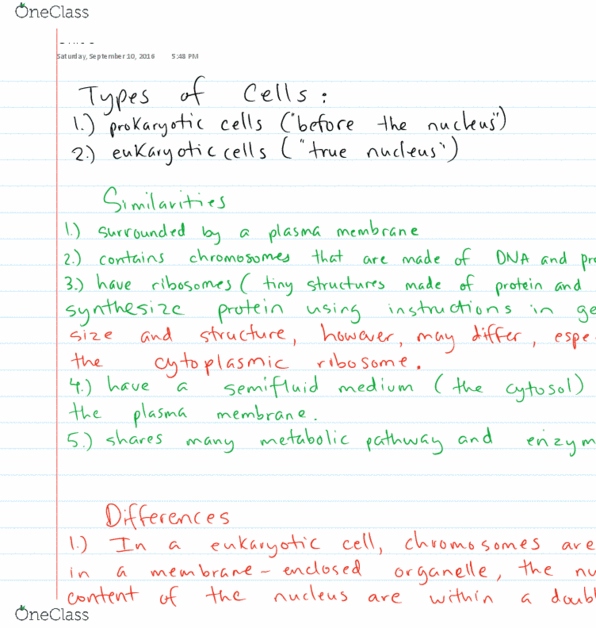 OneClass
Saturday, September 10, 2016 5:48 PM
Types of Cells:
1.) prokaryotic cells ("before the nucleus")
2.) eukaryotic cells ("true nucleus")
Similarities
1.) surrounded by a plasma membrane
2.) contains chromosomes that are made of DNA and pr
3.) have ribosomes (tiny structures made of protein and
synthesize protein using instructions in ge
size and structure, however, may differ, espe
the cytoplasmic ribosome.
4.) have a semifluid medium (the cytosol)
the plasma membrane.
5.) shares many metabolic pathway and enzym
Differences
1.) In a eukaryotic cell, chromosomes are
in a membrane-enclosed organelle, the nu
content of the nucleus are within a doubl
OneClass